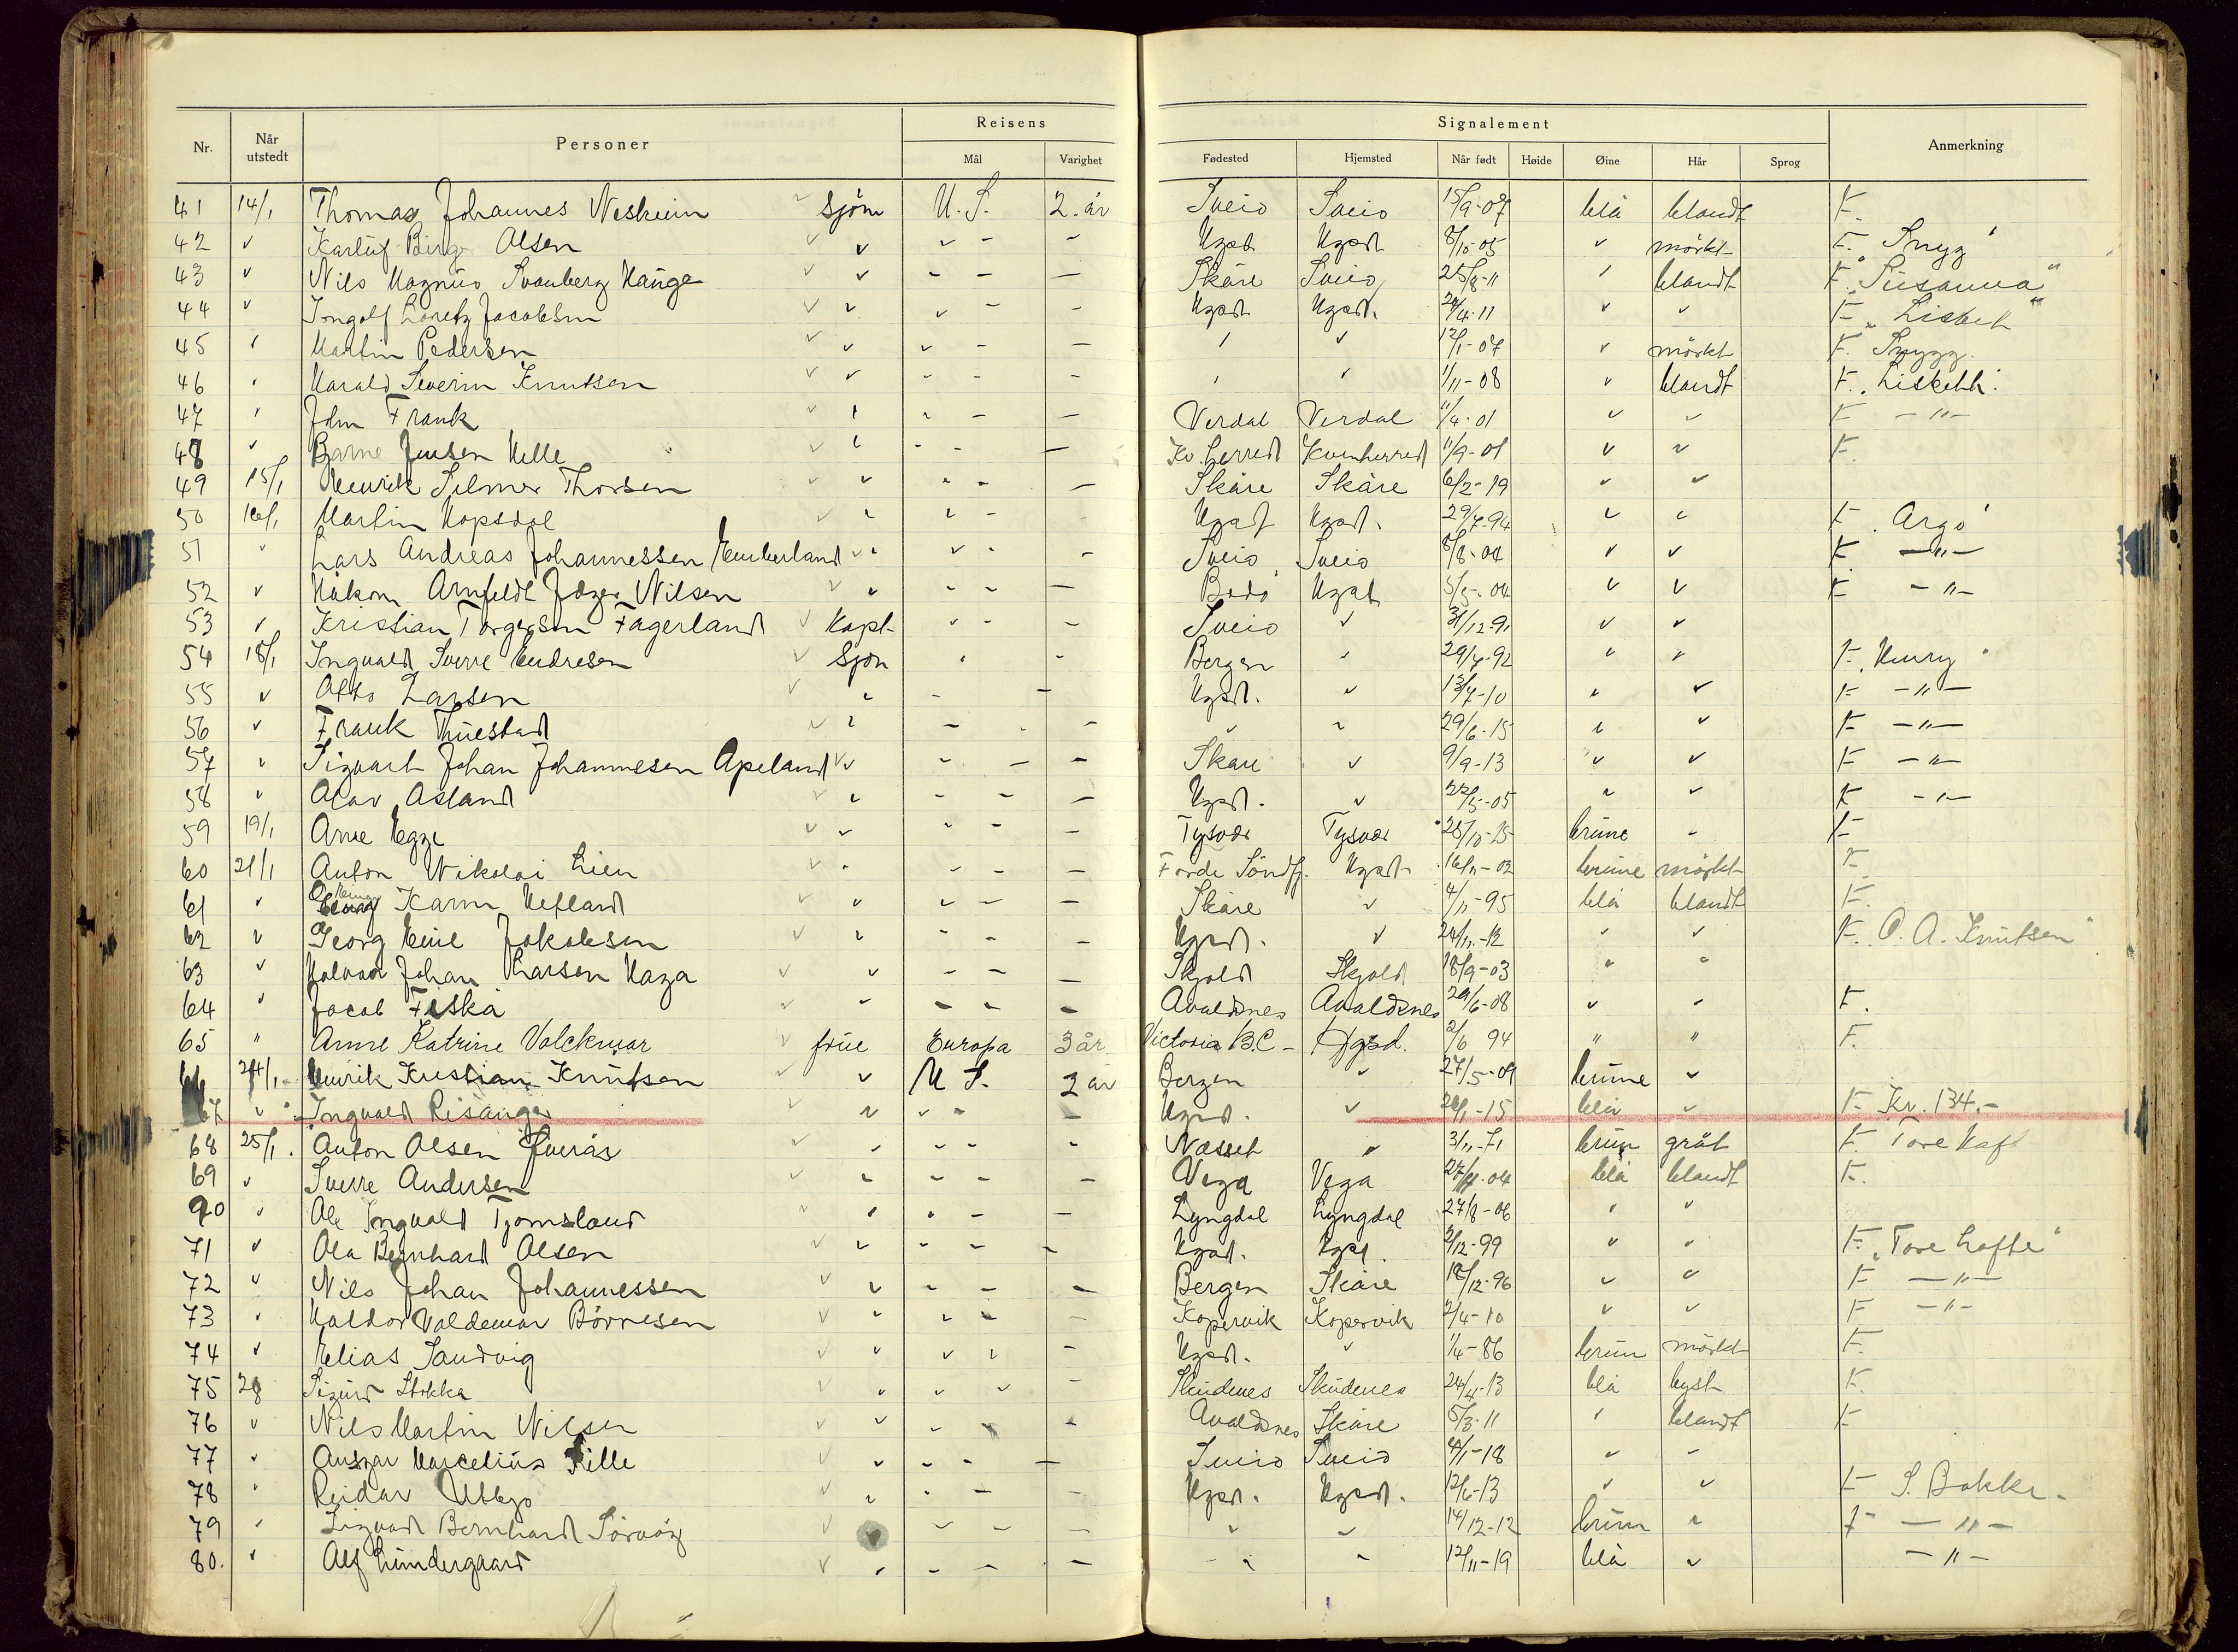 Nr. Når utstedt Personer Reisens Mål Varighet Signalement Fødested Hjemsted Når født Høide Øine Hår Sprog Anmerkning
41 14/1 Thomas Johannes Vestreim sjøm U.S. 2. år Sveio Sveio 15/9-07 blå blandt F.
42 " Karluf Birg Olsen " " - - Hgsd. Hgsd. 8/10-05 " mörkt F. Snyg"
43 " Nils Magnus Svanberg Hauge " - - - Skåre Sveio 25/8-11 " blandt F. "Susanna"
44 " Ingolf Loretz Jacobsen " " - - Hgsd. Hgsd. 4-11 " " F. "Lisbet"
45 " Martin Pedersen " " - - " " 12/1-07 " mörkt F. Snygg
46 " Harald Severin Knutsen " - - - " " 1/11-08 " blandt F. "Lisbeth"
47 " John Frank " " - - Verdal Verdal 11/4-01 " " F -"-
48 " Barne Jensen Helle " - - - Kv.herred Kvinherred 11/9-01 " " F.
49 15/1 Henrik Selmer Thorsen " " - - Skåre Skåre 6/2-19 " "
50 16/1 Martin Hopsdal " " - - Hgsd. Hgsd. 29/7-94 " " F. "Argo"
51 " Lars Andreas Johannessen Emberland " " - - Sveio Sveio 8/8-04 " " F -"-
52 " Håkon Arnfeldt Nilsen " - - - Bodö Hgsd. 5/5-04 " " F -"-
53 " Kristian Torgersen Fagerland Kapt. " - - Sveio " 31/12-91 " "
54 18/1 Ingvald Sverre Endresen Sjøm " - Bergen " 29/7-92 " " F. "Henry"
55 " Otto Larsen " - - Hgsd. " 13/7-10 " " F -"-
56 " Frank Thuestad " - - - " " 29/6-15 " " F -"-
57 " Sigvart Johan Johannesen Apeland " - - - Skåre " 9/9-13 " " F -"-
58 " Olav Åsland " - - - Hgsd. " 22/5-05 " " F -"-
59 19/1 Arne Egge " - - - Tysvær Tysvær 28/10-15 brune - F
60 21/1 Anton Nikolai Lien " - - - Förde Söndfj. Hgsd. 16/11-02 brune mörkt F.
61 " Karm Hetland " - - - Skåre " 4/11-95 blå blandt F.
62 " Georg Emil Jakobsen " - - - Hgsd. " 24/11-12 " " F. "O. A. Knutsen"
63 " Halvor Johan Larsen Haga " - - - Skjold Skjold 18/9-03 " "
64 " Jacob Fiskå " - - - Avaldsnes Avaldsnes 29/6-08 " " F.
65 " Anne Katrine Volckmar frue Europa 3 år Victoria B.C- Hgsd. 2/6 94 " " F.
66 24/1 Henrik Kristian Knutsen " U S. 2 år Bergen " 27/5-09 brune "
67 " Ingvald Risanger " " - - Hgsd. " 26/1-15 blå " F. Kr. 134.-
68 25/1. Anton Olsen Sverås " - - - Nesset " 3/11-71 brun gråt F. Tore Haf
69 " Sverre Andersen " - - - Vega Vega 04 blå blandt F.
70 " Ole Ingvald Tjomsland " " - - Lyngdal Lyngdal 27/8-06 " "
71 " Ola Bernhard Olsen " - - - Hgsd. Hgsd. 2/12-99 " " F. "Tore Hafte"
72 " Nils Johan Johannessen " - - - Bergen Skåre 18/12-96 " " F -"-
73 " Haldor Valdemar Börresen " - - - Kopervik Kopervik 2/4-10 " " F -"-
74 " Elias Sandvig " " " - Hgsd. " 1/4-86 brun mörkt F.
75 28 Sigurd Stokka " " " - Skudenes Skudenes 24/4-13 blå lyst F.
76 " Nils Martin Nilsen " - - - Avaldsnes Skåre 5/3-11 " blandt F
77 " Ansgar Marcelius Lille " - - - Sveio Sveio 4/1-18 " "
78 " Reidar Utbjo " - - - Hgsd. Hgsd. 12/6-13 " " F S. Bakke.
79 " Sigvart Bernhard Sörvåg " - - - " " 14/12-12 brun " F -"-
80. " Alf Lundergaard " - - - " " 12/11-19 blå " -"-